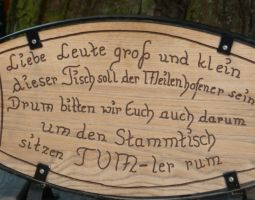 Liebe Leute groß und klein
dieser Tisch soll der Meilenhofener sein
Drum bitten wir Euch auch darum
um den Stammtisch
sitzen TVM-ler rum